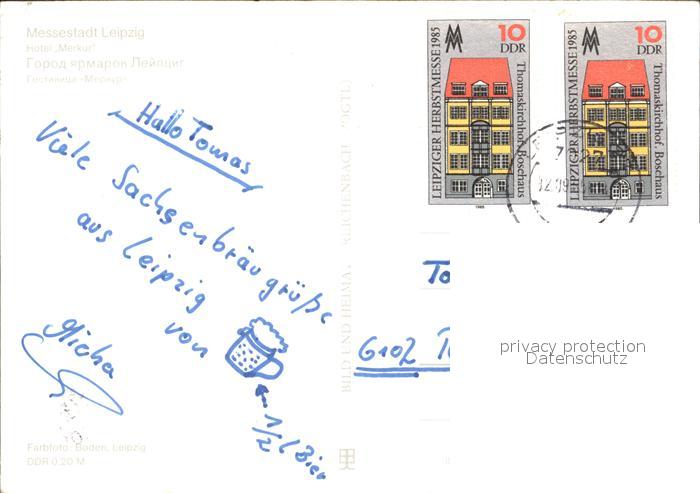 Messestadt Leipzig
Hotel „Merkur"
Город ярмарок Лейпциг
Гостиница «Меркур»
Hallo Tomas
Viele Sachsenbräugrüße
aus Leipzig
von
Micha
1/2 l Bier
Farbfoto: Boden, Leipzig
DDR 0,20 M
BILD UND HEIMAT REICHENBACH (VOGTL
LEIPZIGER HERBSTMESSE 1985
10
DDR
Thomaskirchhof. Bosehaus
1985
LEIPZIGER HERBSTMESSE 1985
10
DDR
Thomaskirchhof. Bosehaus
1985
To
6102
privacy protection
Datenschutz